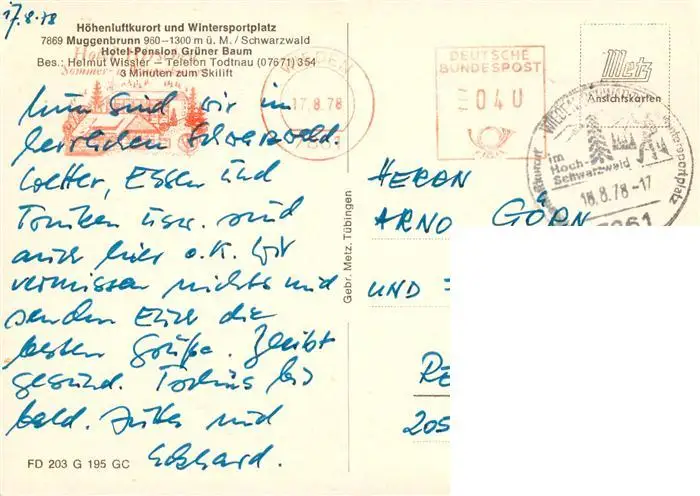 17.8.78
Höhenluftkurort und Wintersportplatz
7869 Muggenbrunn 960–1300 m ü. M. / Schwarzwald
Hotel-Pension Grüner Baum
Bes.: Helmut Wissler – Telefon Todtnau (07671) 354
3 Minuten zum Skilift
Nun sind wir im
herrlichen Schwarzwald.
Wetter, Essen und
Trinken usw. sind
auch hier o.K. Wir
vermissen nichts und
senden Euch die
besten Grüße. Bleibt
gesund. Tschüs bis
bald. Jutta und
Eckhard.
FD 203 G 195 GC
Gebr. Metz, Tübingen
WIEDEN
17.8.78
7861
DEUTSCHE
BUNDESPOST
040
Metz
Ansichtskarten
WIEDEN
im
Hoch-
Schwarzwald
Wintersportplatz
18.8.78-17
7861
HERRN
ARNO GÖRN
UND
RE
205